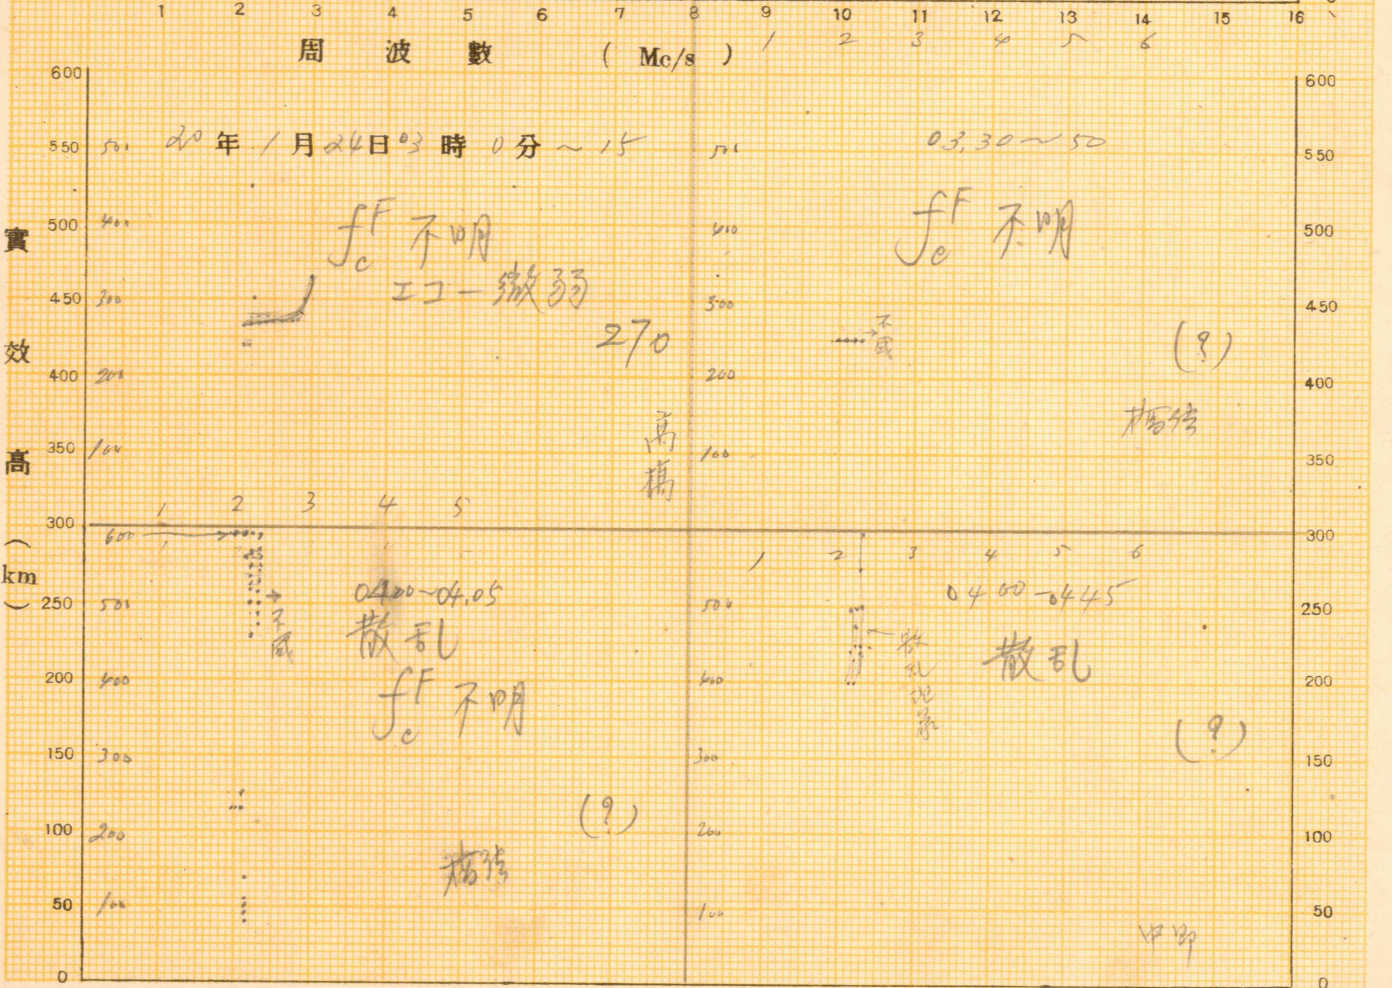 1 2 3 4 5 6 7 8 9 10 11 12 13 14 15 16
1 2 3 4 5 6
周 波 數 ( Mc/s )
實 效 高 (km)
600
550
500
450
400
350
300
250
200
150
100
50
0
600
550
500
450
400
350
300
250
200
150
100
50
0
20年1月24日03時0分~15
500
400
300
200
100
fcF 不明
エコー微弱
270
高橋
03.30~50
500
400
300
200
100
fcF 不明
不感
(?)
1 2 3 4 5
600
500
400
300
200
100
0400~04.05
散乱
不感
fcF 不明
(?)
1 2 3 4 5 6
500
400
300
200
100
0400-0445
散乱
散乱
(?)